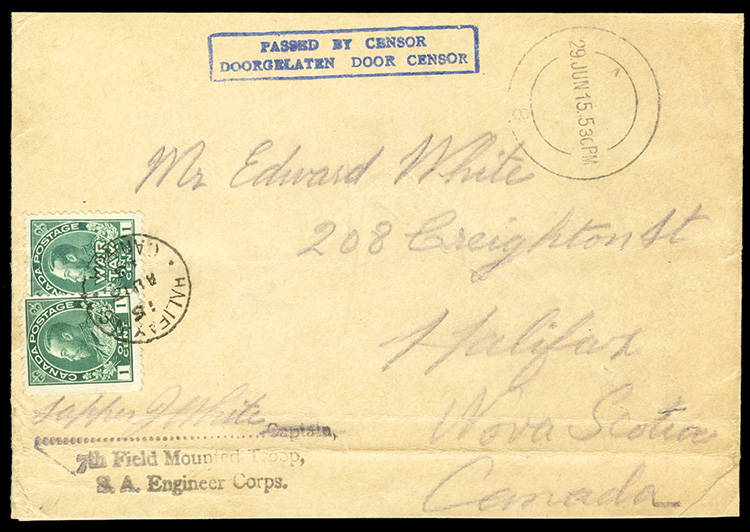 PASSED BY CENSOR
DOORGELATEN DOOR CENSOR
29 JUN 15. 530PM
8
Mr Edward White
208 Creighton St
Halifax
Nova Scotia
Canada
CANADA POSTAGE
WAR
TAX
ONE
CENT
1
CANADA POSTAGE
1 CENT 1
HALIFAX
CAN
AU
15
Sapper J White
Captain,
7th Field Mounted Troop,
S. A. Engineer Corps.